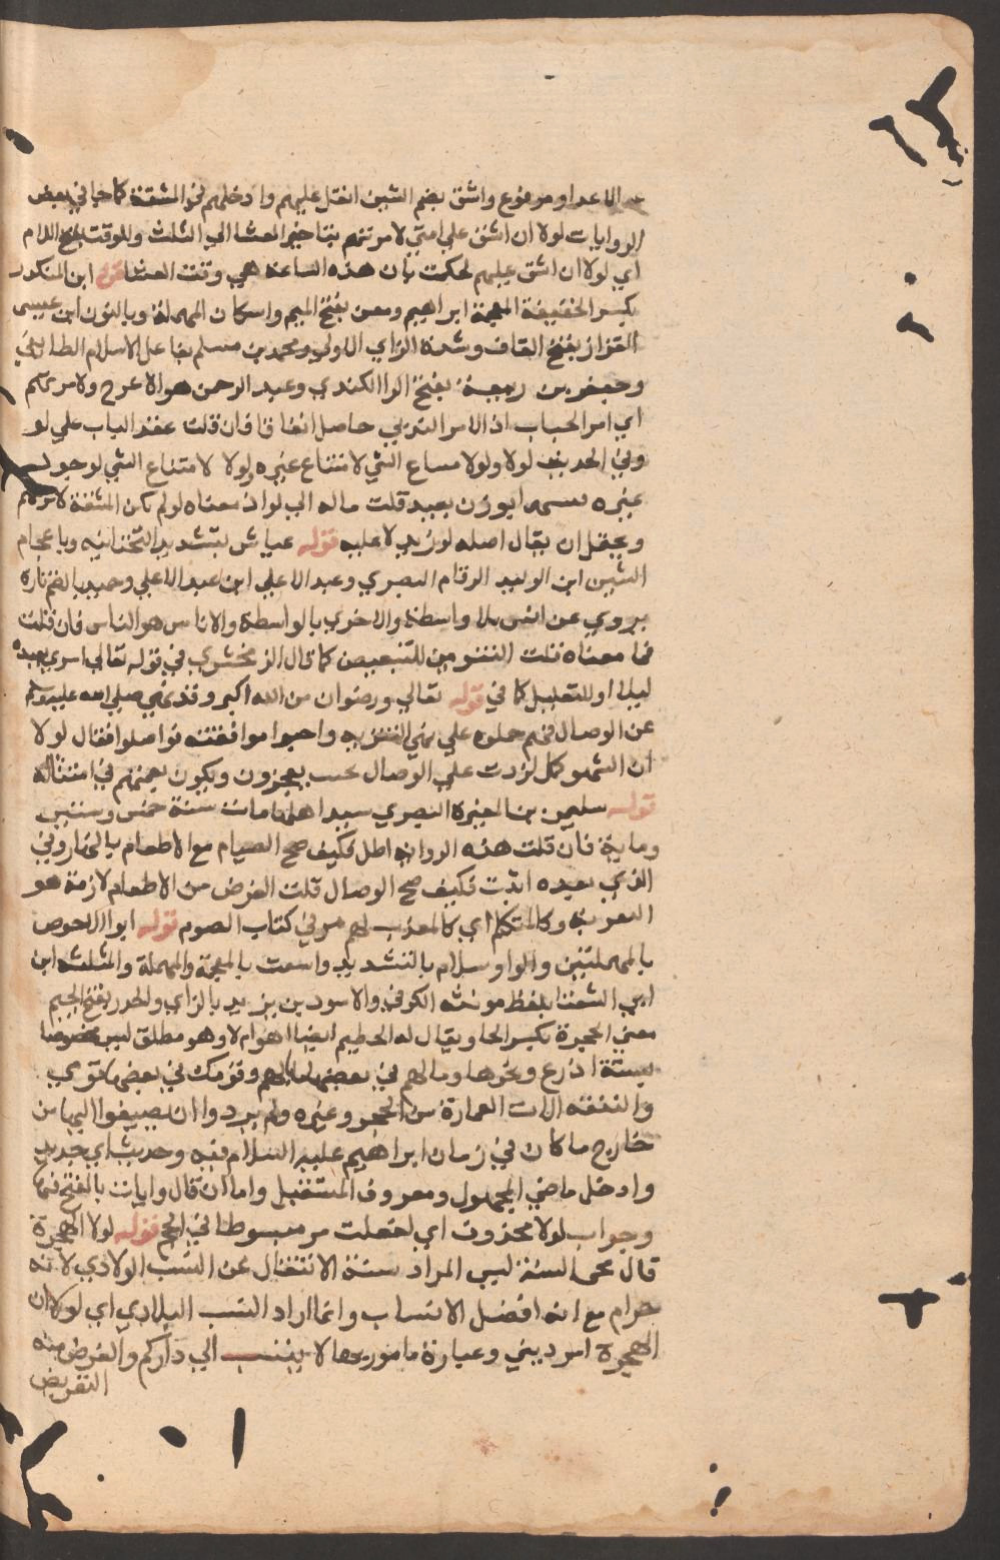 الاعداو مرفوع واشق بضم الشين اثقل عليهم وادخلهم في المشقة كما جا في بعض
الروايات لولا ان اشق علي امتي لامرتهم بتاخير العشا الي الثلث وللوقت بفتح اللام
اي لولا ان اشق عليهم لحكمت بان هذه الساعة هي وقت العشا قوله ابن المنكدر
بكسر الخفيفة ابراهيم ومعن بفتح الميم واسكان المهملة وبالنون ابن عيسي
القزاز بفتح القاف وشدة الزاي الاولي ومحمد بن مسلم بفاعل الاسلام الطايفي
وجعفر بن ربيعة بفتح الرا الكندي وعبد الرحمن هو الاعرج ولامرتكم
اي امر ايجاب اذ الامر الندبي حاصل اتفاقا فان قلت عقد الباب علي لو
وفي الحديث لولا ولولا امتناع الشي لامتناع غيره ولولا لامتناع الشي لوجود
غيره بعيد قلت ماله الي لو اذ معناه لو لم تكن المشقة لامرتكم
ويحتمل ان يقال اصله لو زيد لا عليه قوله عياش بتشديد التحتانية وباعجام
الشين ابن الوليد الرقام البصري وعبد الاعلي ابن عبد الاعلي وحميد بالضم تارة
يروي عن انس بلا واسطة والاخري بالواسطة والاناس هو الناس فان قلت
فما معناه قلت التنوين للتبعيض كما قال الزمخشري في قوله تعالي اسري بعبده
ليلا او للتقليل كما في قوله تعالي ورضوان من الله اكبر وقد نهي صلي الله عليه وسلم
عن الوصال فهم حملوه علي نهي التنزيه واحبوا موافقته فواصلوا فقال لولا
ان الشهر كمل لزدت علي الوصال بحيث يعجزون ويكون يمنهم في امتثاله
قوله سليمن بن المغيرة البصري سيد اهلها مات سنة خمس وستين
وماية فان قلت هذه الرواية اظل فكيف صح الصيام مع الاطعام بالنهار وفي
الذي بعيده ابيت فكيف صح الوصال قلت الغرض من الاطعام لازمة هو
التقوية وكالمتكلم اي كالمعذب لهم مر في كتاب الصوم قوله ابو الاحوص
بالمهملتين والواو سلام بالتشديد واشعث بالمعجمة والمهملة والمثلثة ابن
ابي الشعثا بلفظ مونثه الكوفي والاسود بن يزيد بالزاي والجدر بفتح الجيم
معني الحجرة بكسر الحا ويقال له الحطيم ايضا اهو ام لا وهو مطلق ليس مخصوصا
بستة اذرع ونحوها وما لهم في بعضها ما بالهم وقومك في بعضها قومي
والنفقة الات العمارة من الحجر وغيره ولم يريدوا ان يضيفوا اليها من
خارج ما كان في زمان ابراهيم عليه السلام فيه وحديث اي جديد
وادخل ماضي المجهول ومعروف المستقبل واما ان قال وايات بالفتح فيها
وجواب لولا محذوف اي لفعلت مر مبسوطا في الحج قوله لولا الهجرة
قال محي السنة ليس المراد سنة الانتقال عن النسب الولادي لانه
حرام مع انه افضل الانساب وانما اراد النسب البلادي اي لولا ان
الهجرة امر ديني وعبارة مامور بها لانتسبت الي داركم والغرض منه
التعريض